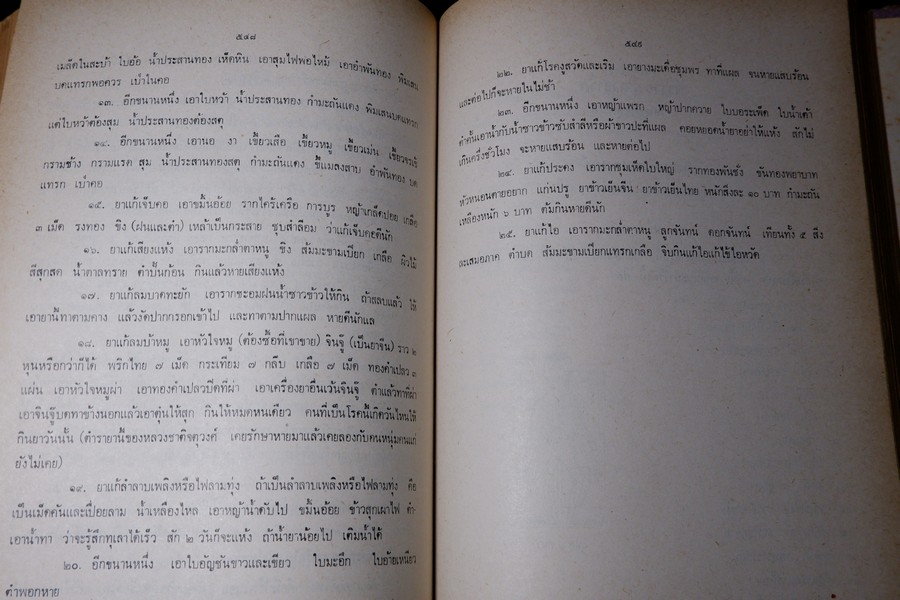 ๕๔๘
เมล็ดในสะบ้า ใบอ้อ น้ำประสานทอง เห็ดหิน เอาสุมไฟพอไหม้ เอาอำพันทอง พิมเสน
บดแทรกพอควร เป่าในคอ
๑๓. อีกขนานหนึ่ง เอาใบหว้า น้ำประสานทอง กำมะถันแดง พิมเสนบดแทรก
แต่ใบหว้าต้องสุม น้ำประสานทองต้องสตุ
๑๔. อีกขนานหนึ่ง เอานอ งา เขี้ยวเสือ เขี้ยวหมู เขี้ยวเม่น เขี้ยวจรเข้
กรามช้าง กรามแรด สุม น้ำประสานทองสตุ กำมะถันแดง ขี้แมลงสาบ อำพันทอง บด
แทรก เป่าคอ
๑๕. ยาแก้เจ็บคอ เอาขมิ้นอ้อย รากไคร้เครือ การบูร หญ้าเกล็ดปลอย เกลือ
๓ เม็ด รงทอง ขิง (ฝนและตำ) เหล้าเป็นกระสาย ชุบสำลีอม ว่าแก้เจ็บคอดีนัก
๑๖. ยาแก้เสียงแห้ง เอารากมะกล่ำตาหนู ขิง ส้มมะขามเปียก เกลือ ผิวไม้
สีสุกสด น้ำตาลทราย ตำปั้นก้อน กินแล้วหายเสียงแห้ง
๑๗. ยาแก้ลมบาดทะยัก เอารากชะอมฝนน้ำซาวข้าวให้กิน ถ้าสลบแล้ว ให้
เอายานี้ทาตามคาง แล้วงัดปากกรอกเข้าไป และทาตามปากแผล หายดีนักแล
๑๘. ยาแก้ลมบ้าหมู เอาหัวใจหมู (ต้องซื้อที่เขาขาย) จินจู๊ (เป็นยาจีน) ราว ๒
หุนหรือกว่าก็ได้ พริกไทย ๗ เม็ด กระเทียม ๗ กลีบ เกลือ ๗ เม็ด ทองคำเปลว ๓
แผ่น เอาหัวใจหมูผ่า เอาทองคำเปลวปิดที่ผ่า เอาเครื่องยาอื่นเว้นจินจู๊ ตำแล้วทาที่ผ่า
เอาจินจู๊บดทาข้างนอกแล้วเอาตุ๋นให้สุก กินให้หมดหนเดียว คนที่เป็นโรคนี้เกิดวันไหนให้
กินยาวันนั้น (ตำรายานี้ของหลวงชาติจตุวงค์ เคยรักษาหายมาแล้วเคยลองกับคนหนุ่มคนแก่
ยังไม่เคย)
๑๙. ยาแก้ลำลาบเพลิงหรือไฟลามทุ่ง ถ้าเป็นลำลาบเพลิงหรือไฟลามทุ่ง คือ
เป็นเม็ดคันและเปื่อยลาม น้ำเหลืองไหล เอาหญ้าน้ำดับไป ขมิ้นอ้อย ข้าวสุกเผาไฟ ตำ
เอาน้ำทา ว่าจะรู้สึกทุเลาได้เร็ว สัก ๒ วันก็จะแห้ง ถ้าน้ำยาน้อยไป เติมน้ำได้
๒๐. อีกขนานหนึ่ง เอาใบอัญชันขาวและเขียว ใบมะอึก ใบอ้ายเหนียว
ตำพอกหาย
๕๔๙
๒๒. ยาแก้โรคงูสวัดและเริม เอายางมะเดื่อชุมพร ทาที่แผล จนหายแสบร้อน
และต่อไปก็จะหายในไม่ช้า
๒๓. อีกขนานหนึ่ง เอาหญ้าแพรก หญ้าปากควาย ใบบอระเพ็ด ใบน้ำเต้า
ตำคั้นเอาน้ำกับน้ำซาวข้าวซับสำลีหรือผ้าขาวปะที่แผล คอยหยอดน้ำยาอย่าให้แห้ง สักไม่
เกินครึ่งชั่วโมง จะหายแสบร้อน และหายต่อไป
๒๔. ยาแก้ประดง เอารากชุมเห็ดใบใหญ่ รากทองพันชั่ง ขันทองพยาบาท
หัวหนอนตายอยาก แก่นปรู ยาข้าวเย็นจีน ยาข้าวเย็นไทย หนักสิ่งละ ๑๐ บาท กำมะถัน
เหลืองหนัก ๖ บาท ต้มกินหายดีนัก
๒๕. ยาแก้ไอ เอารากมะกล่ำตาหนู ลูกจันทน์ ดอกจันทน์ เทียนทั้ง ๕ สิ่ง
ละเสมอภาค ตำบด ส้มมะขามเปียกแทรกเกลือ จิบกินแก้ไอแก้ไข้ไอหวัด